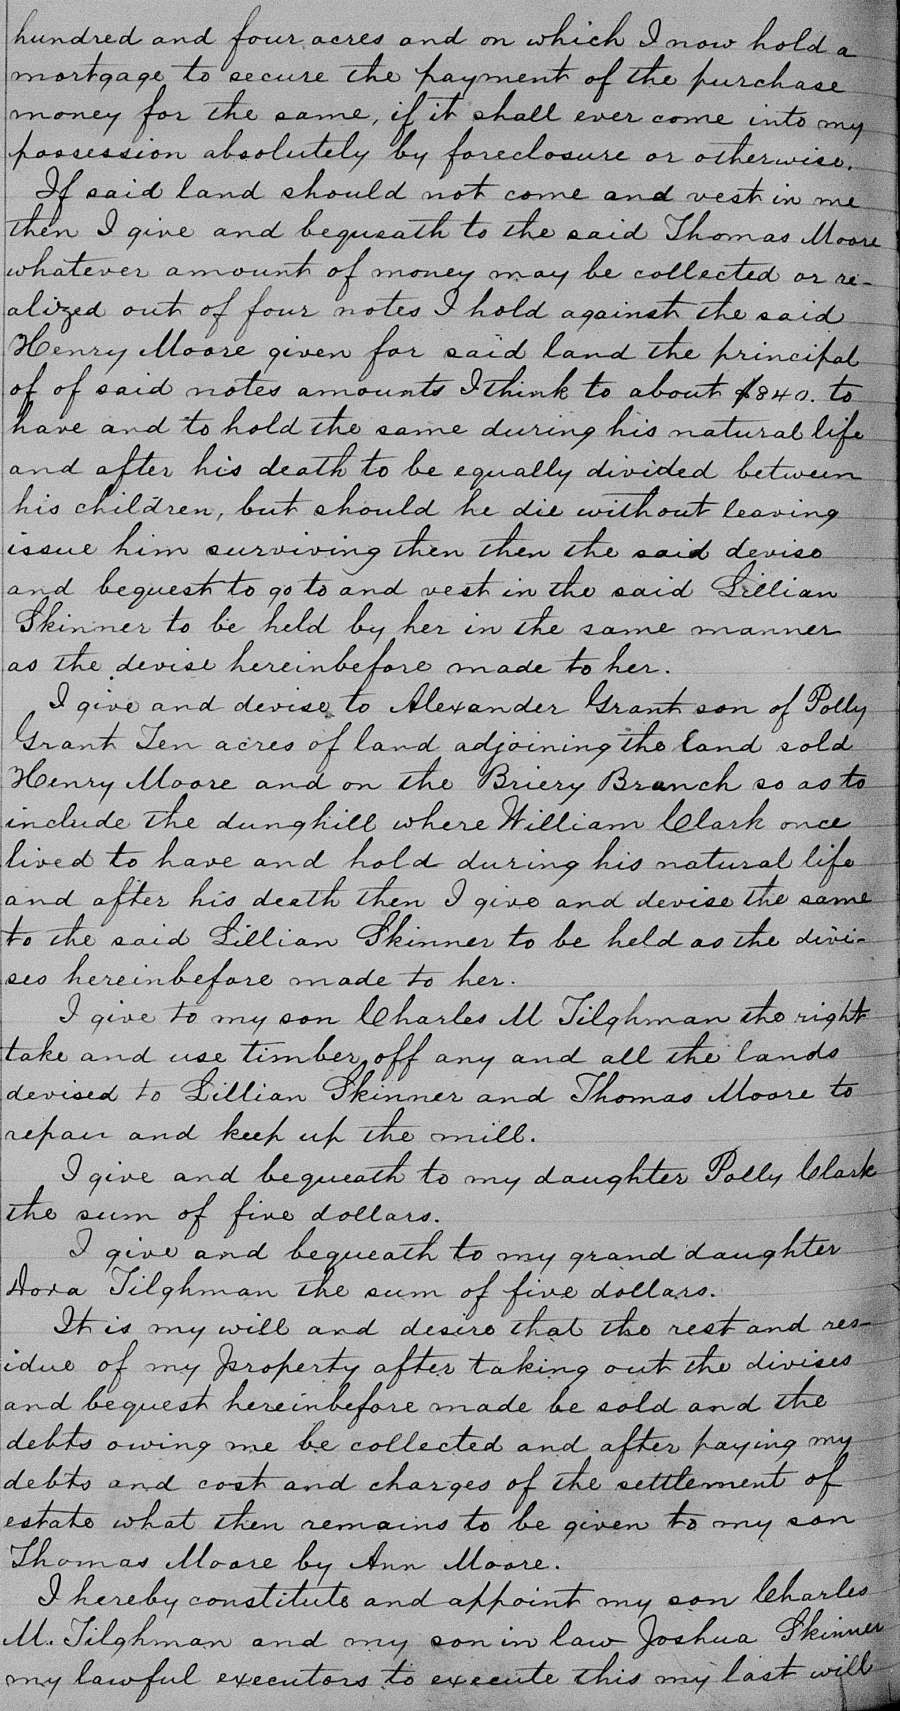 hundred and four acres and on which I now hold a
mortgage to secure the payment of the purchase
money for the same, if it shall ever come into my
possession absolutely by foreclosure or otherwise.
If said land should not come and vest in me
then I give and bequeath to the said Thomas Moore
whatever amount of money may be collected or re-
alized out of four notes I hold against the said
Henry Moore given for said land the principal
of of said notes amounts I think to about $840. to
have and to hold the same during his natural life
and after his death to be equally divided between
his children, but should he die without leaving
issue him surviving then then the said devise
and bequest to go to and vest in the said Lillian
Skinner to be held by her in the same manner
as the devise hereinbefore made to her.
I give and devise to Alexander Grant son of Polly
Grant Ten acres of land adjoining the land sold
Henry Moore and on the Briery Branch so as to
include the dunghill where William Clark once
lived to have and hold during his natural life
and after his death then I give and devise the same
to the said Lillian Skinner to be held as the divi-
ses hereinbefore made to her.
I give to my son Charles M Tilghman the right
take and use timber off any and all the lands
devised to Lillian Skinner and Thomas Moore to
repair and keep up the mill.
I give and bequeath to my daughter Polly Clark
the sum of five dollars.
I give and bequeath to my grand daughter
Dora Tilghman the sum of five dollars.
It is my will and desire that the rest and res-
idue of my property after taking out the divises
and bequest hereinbefore made be sold and the
debts owing me be collected and after paying my
debts and cost and charges of the settlement of
estate what then remains to be given to my son
Thomas Moore by Ann Moore.
I hereby constitute and appoint my son Charles
M. Tilghman and my son in law Joshua Skinner
my lawful executors to execute this my last will